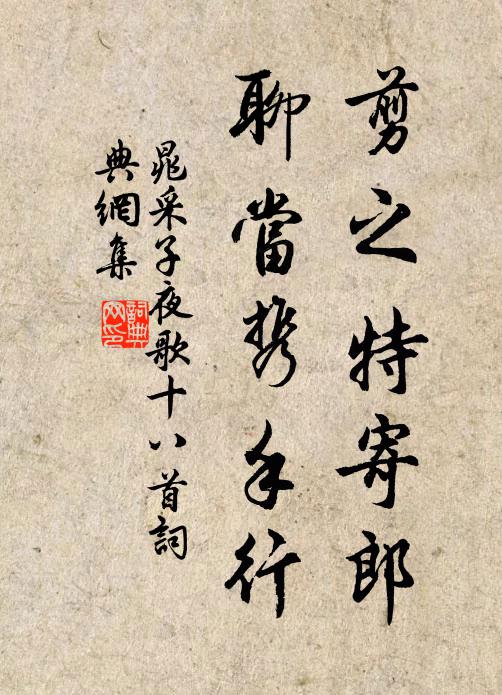 翦之特寄郎
聊當携手行
晁采子夜歌十八首詞
典網集
詞典
网印